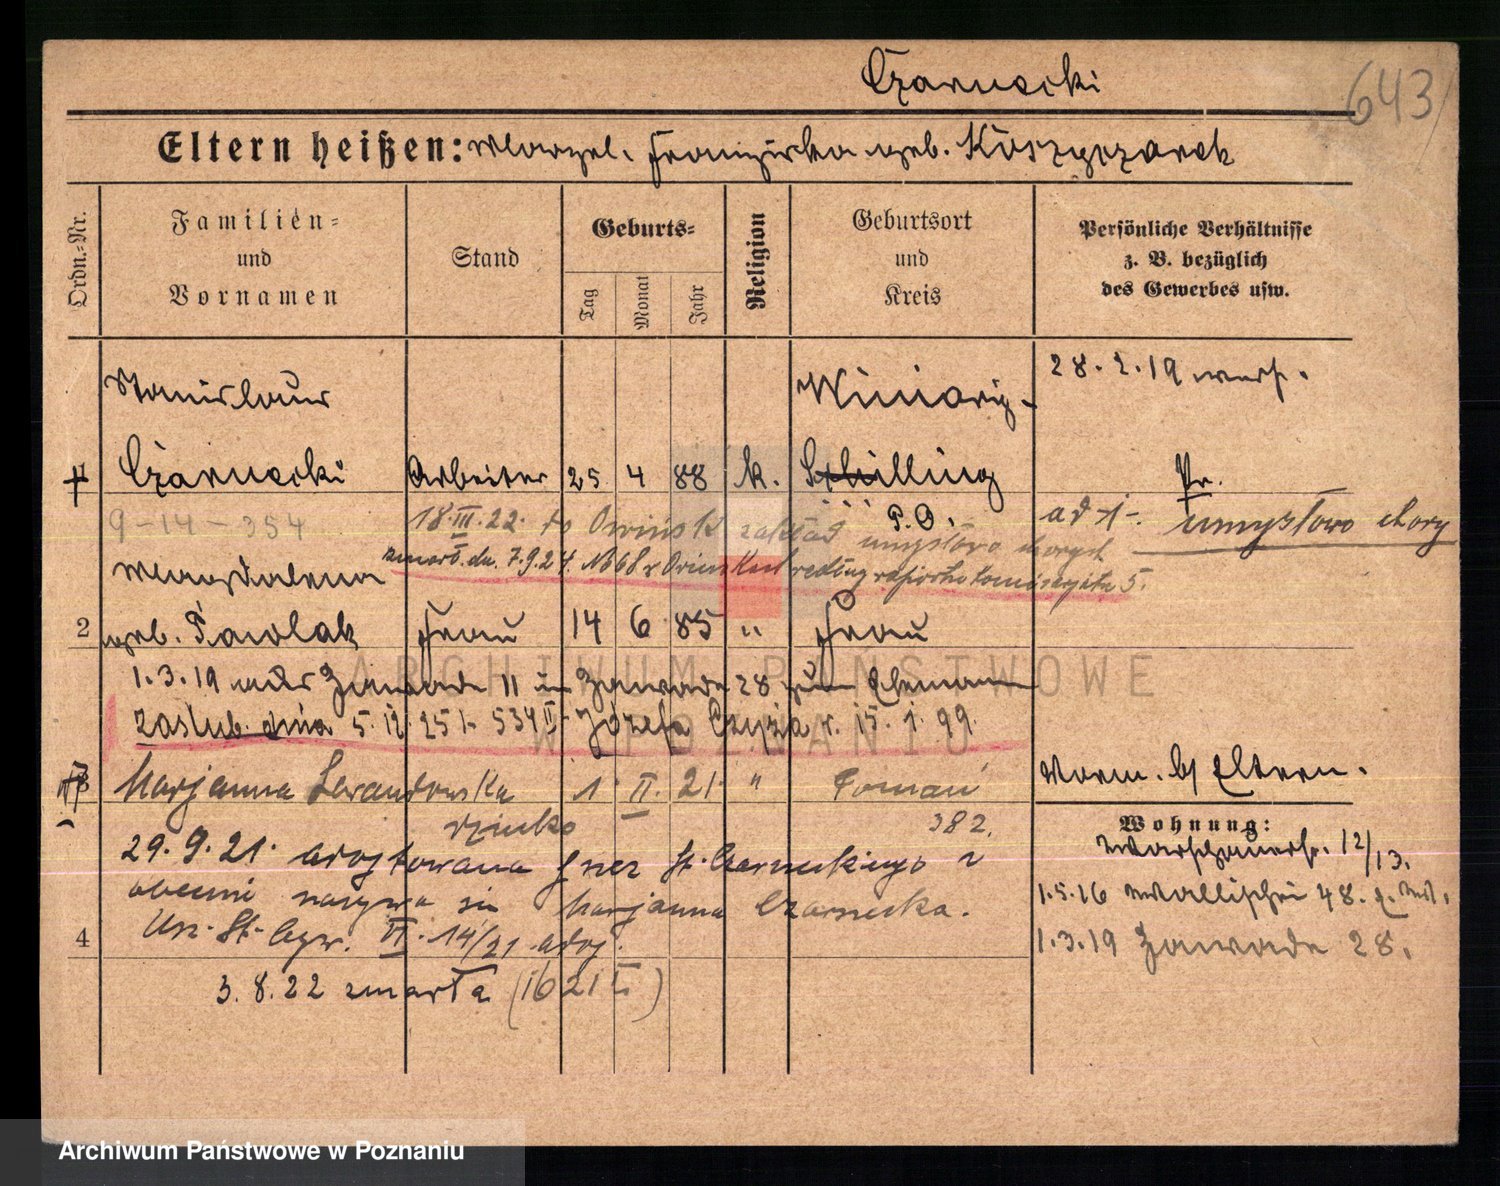 Czarnecki
643
Eltern heißen: Franziska geb.
Ordn.-Nr.
Familien=
und
Vornamen
Stand
Geburts=
Tag
Monat
Jahr
Religion
Geburtsort
und
Kreis
Persönliche Verhältnisse
z. B. bezüglich
des Gewerbes usw.
Stanislaus
28. 2. 19
1 Czarnecki Arbeiter 25 4 88 k. Schilling
Pr.
P. O.
9-14-354
18.III.22. do Owińsk zakład umysłowo chorych
ad 1. umysłowo chory
zmarł dn. 7.9.24. No 68
Magdalena
2 geb. Pawlak Frau 14 6 85 " Frau
1.3.19 aus Zawade 11 in Zawade 28 zum Ehemann
zaślub. dnia 5. 12. 25 Józefa Czyża r. 15. 1. 99.
3 Marjanna Lewandowska 1 II. 21. " Poznań
Vorm. b/ Eltern.
dziecko
382.
Wohnung:
29.9.21. adoptowana przez St. Czarneckiego i
12/13.
obecnie nazywa się Marjanna Czarnecka.
1.5.16 Wallischei 48.
4 Urz. St. VI. 14/21 adop.
1.3.19 Zawade 28.
3. 8. 22 zmarła (1621 II)
ARCHIWUM PAŃSTWOWE
W POZNANIU
Archiwum Państwowe w Poznaniu